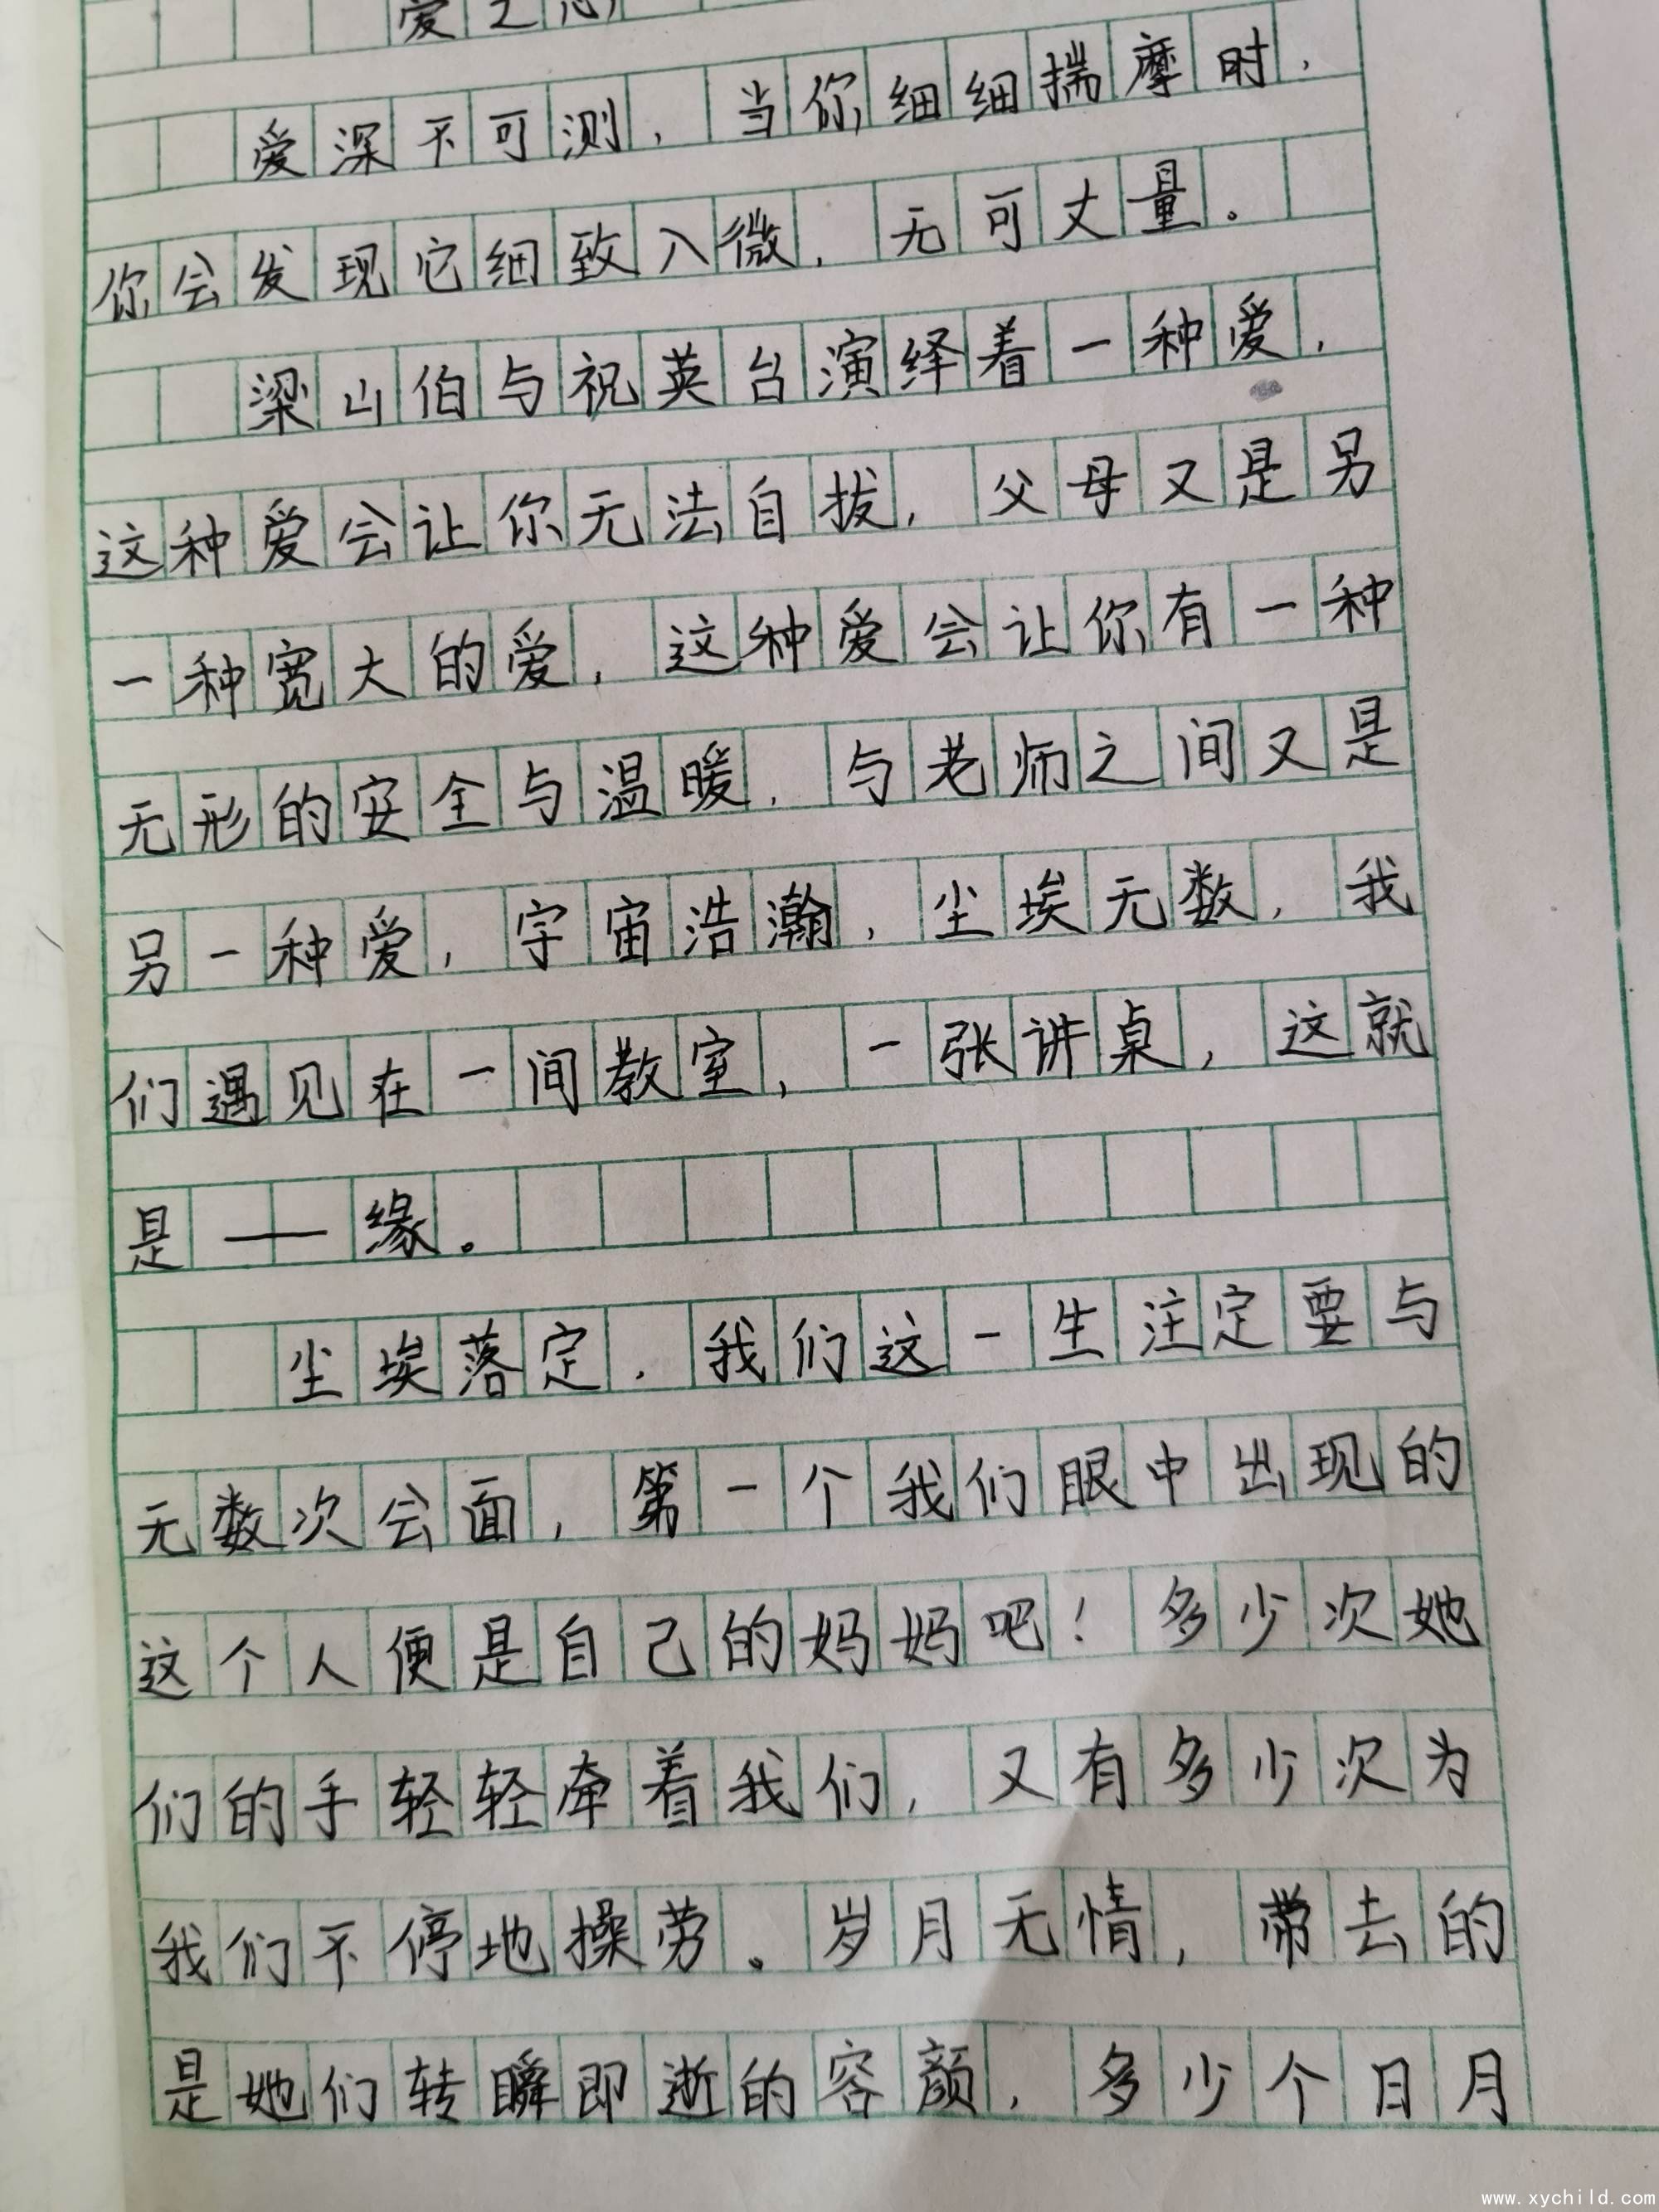 爱之
爱深不可测，当你细细揣摩时，
你会发现它细致入微，无可丈量。
梁山伯与祝英台演绎着一种爱，
这种爱会让你无法自拔，父母又是另
一种宽大的爱，这种爱会让你有一种
无形的安全与温暖，与老师之间又是
另一种爱，宇宙浩瀚，尘埃无数，我
们遇见在一间教室，一张讲桌，这就
是——缘。
尘埃落定，我们这一生注定要与
无数次会面，第一个我们眼中出现的
这个人便是自己的妈妈吧！多少次她
们的手轻轻牵着我们，又有多少次为
我们不停地操劳。岁月无情，带去的
是她们转瞬即逝的容颜，多少个日月
www.xychild.com